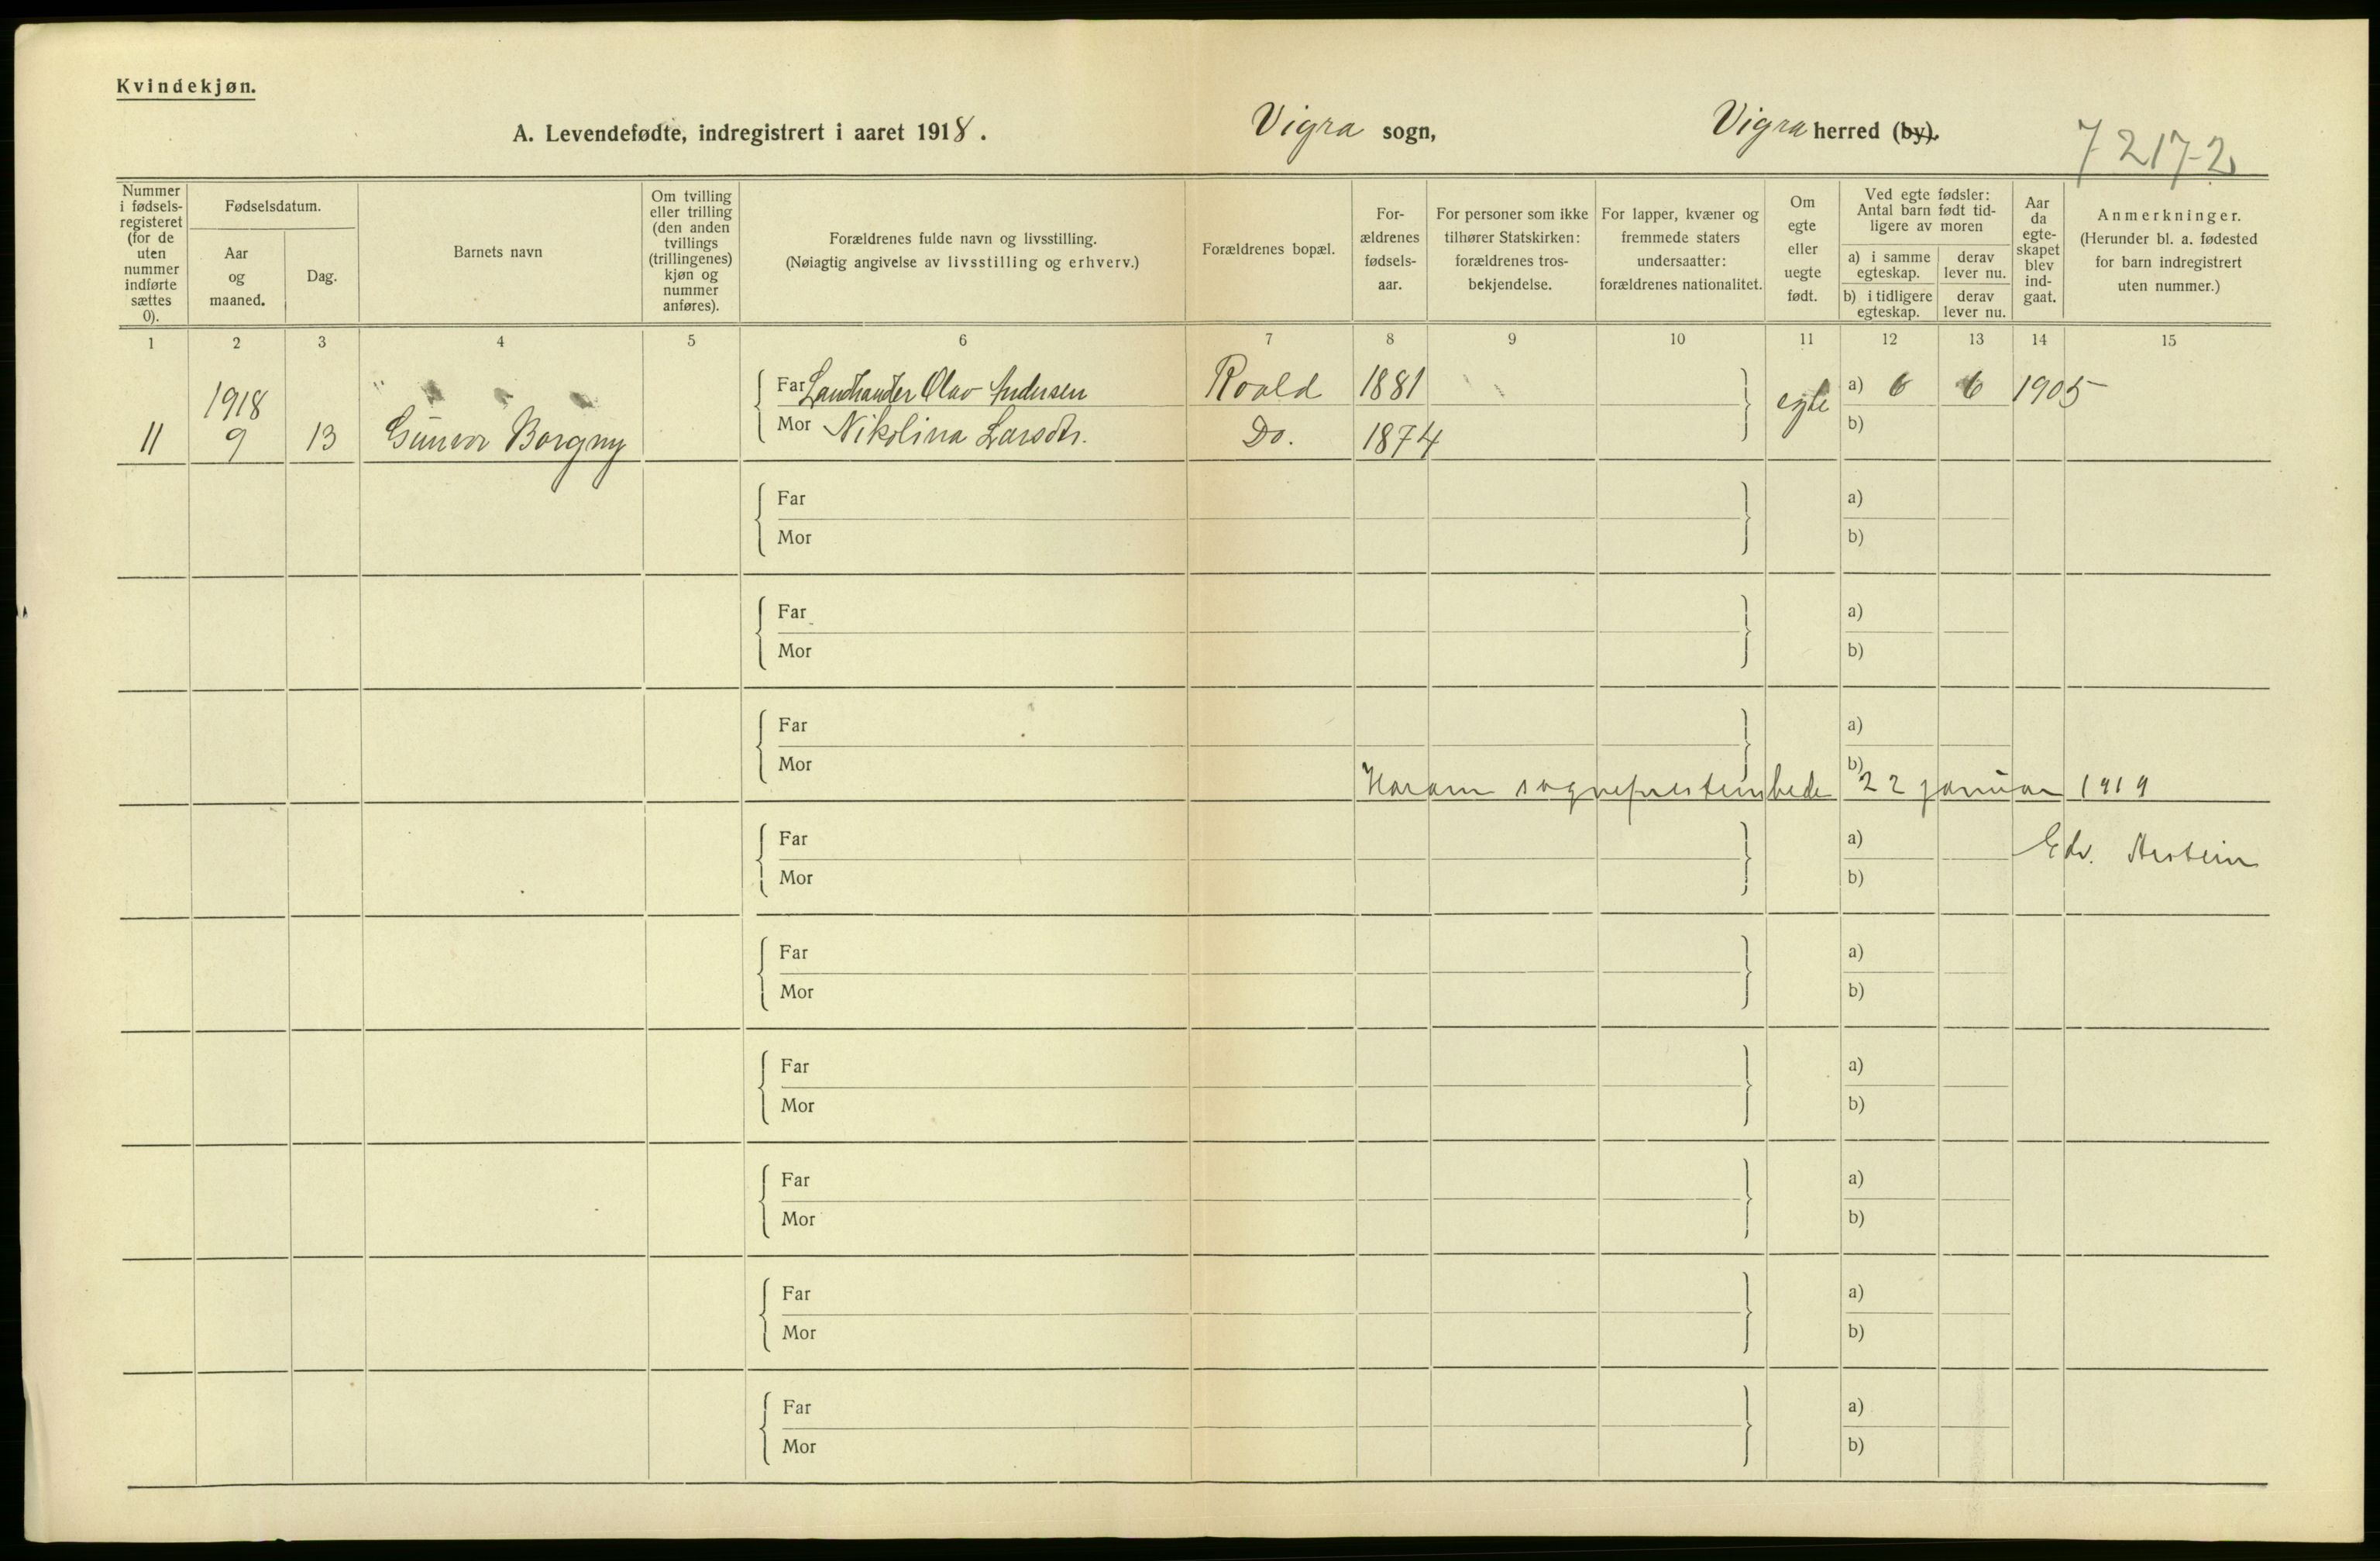 Kvindekjøn.
A. Levendefødte, indregistrert i aaret 1918.
Vigra sogn,
Vigra herred (by).
7217-2
Nummer i fødselsregisteret (for de uten nummer indførte sættes 0).
Fødselsdatum.
Aar og maaned.
Dag.
Barnets navn
Om tvilling eller trilling (den anden tvillings (trillingenes) kjøn og nummer anføres).
Forældrenes fulde navn og livsstilling.
(Nøiagtig angivelse av livsstilling og erhverv.)
Forældrenes bopæl.
Forældrenes fødselsaar.
For personer som ikke tilhører Statskirken: forældrenes trosbekjendelse.
For lapper, kvæner og fremmede staters undersaatter: forældrenes nationalitet.
Om egte eller uegte født.
Ved egte fødsler: Antal barn født tidligere av moren
a) i samme egteskap.
derav lever nu.
b) i tidligere egteskap.
derav lever nu.
Aar da egteskapet blev indgaat.
Anmerkninger.
(Herunder bl. a. fødested for barn indregistrert uten nummer.)
1 2 3 4 5 6 7 8 9 10 11 12 13 14 15
1918
Far Landhandler Olav Andersen Roald 1881 egte a) 6 6 1905
11 9 13 Gunvor Borgny Mor Nikolina Larsdtr. Do. 1874 b)
Far a)
Mor b)
Far a)
Mor b)
Far a)
Mor b)
Haram sogneprestembede 22 januar 1919
Far a)
Edv.
Mor b)
Far a)
Mor b)
Far a)
Mor b)
Far a)
Mor b)
Far a)
Mor b)
Far a)
Mor b)